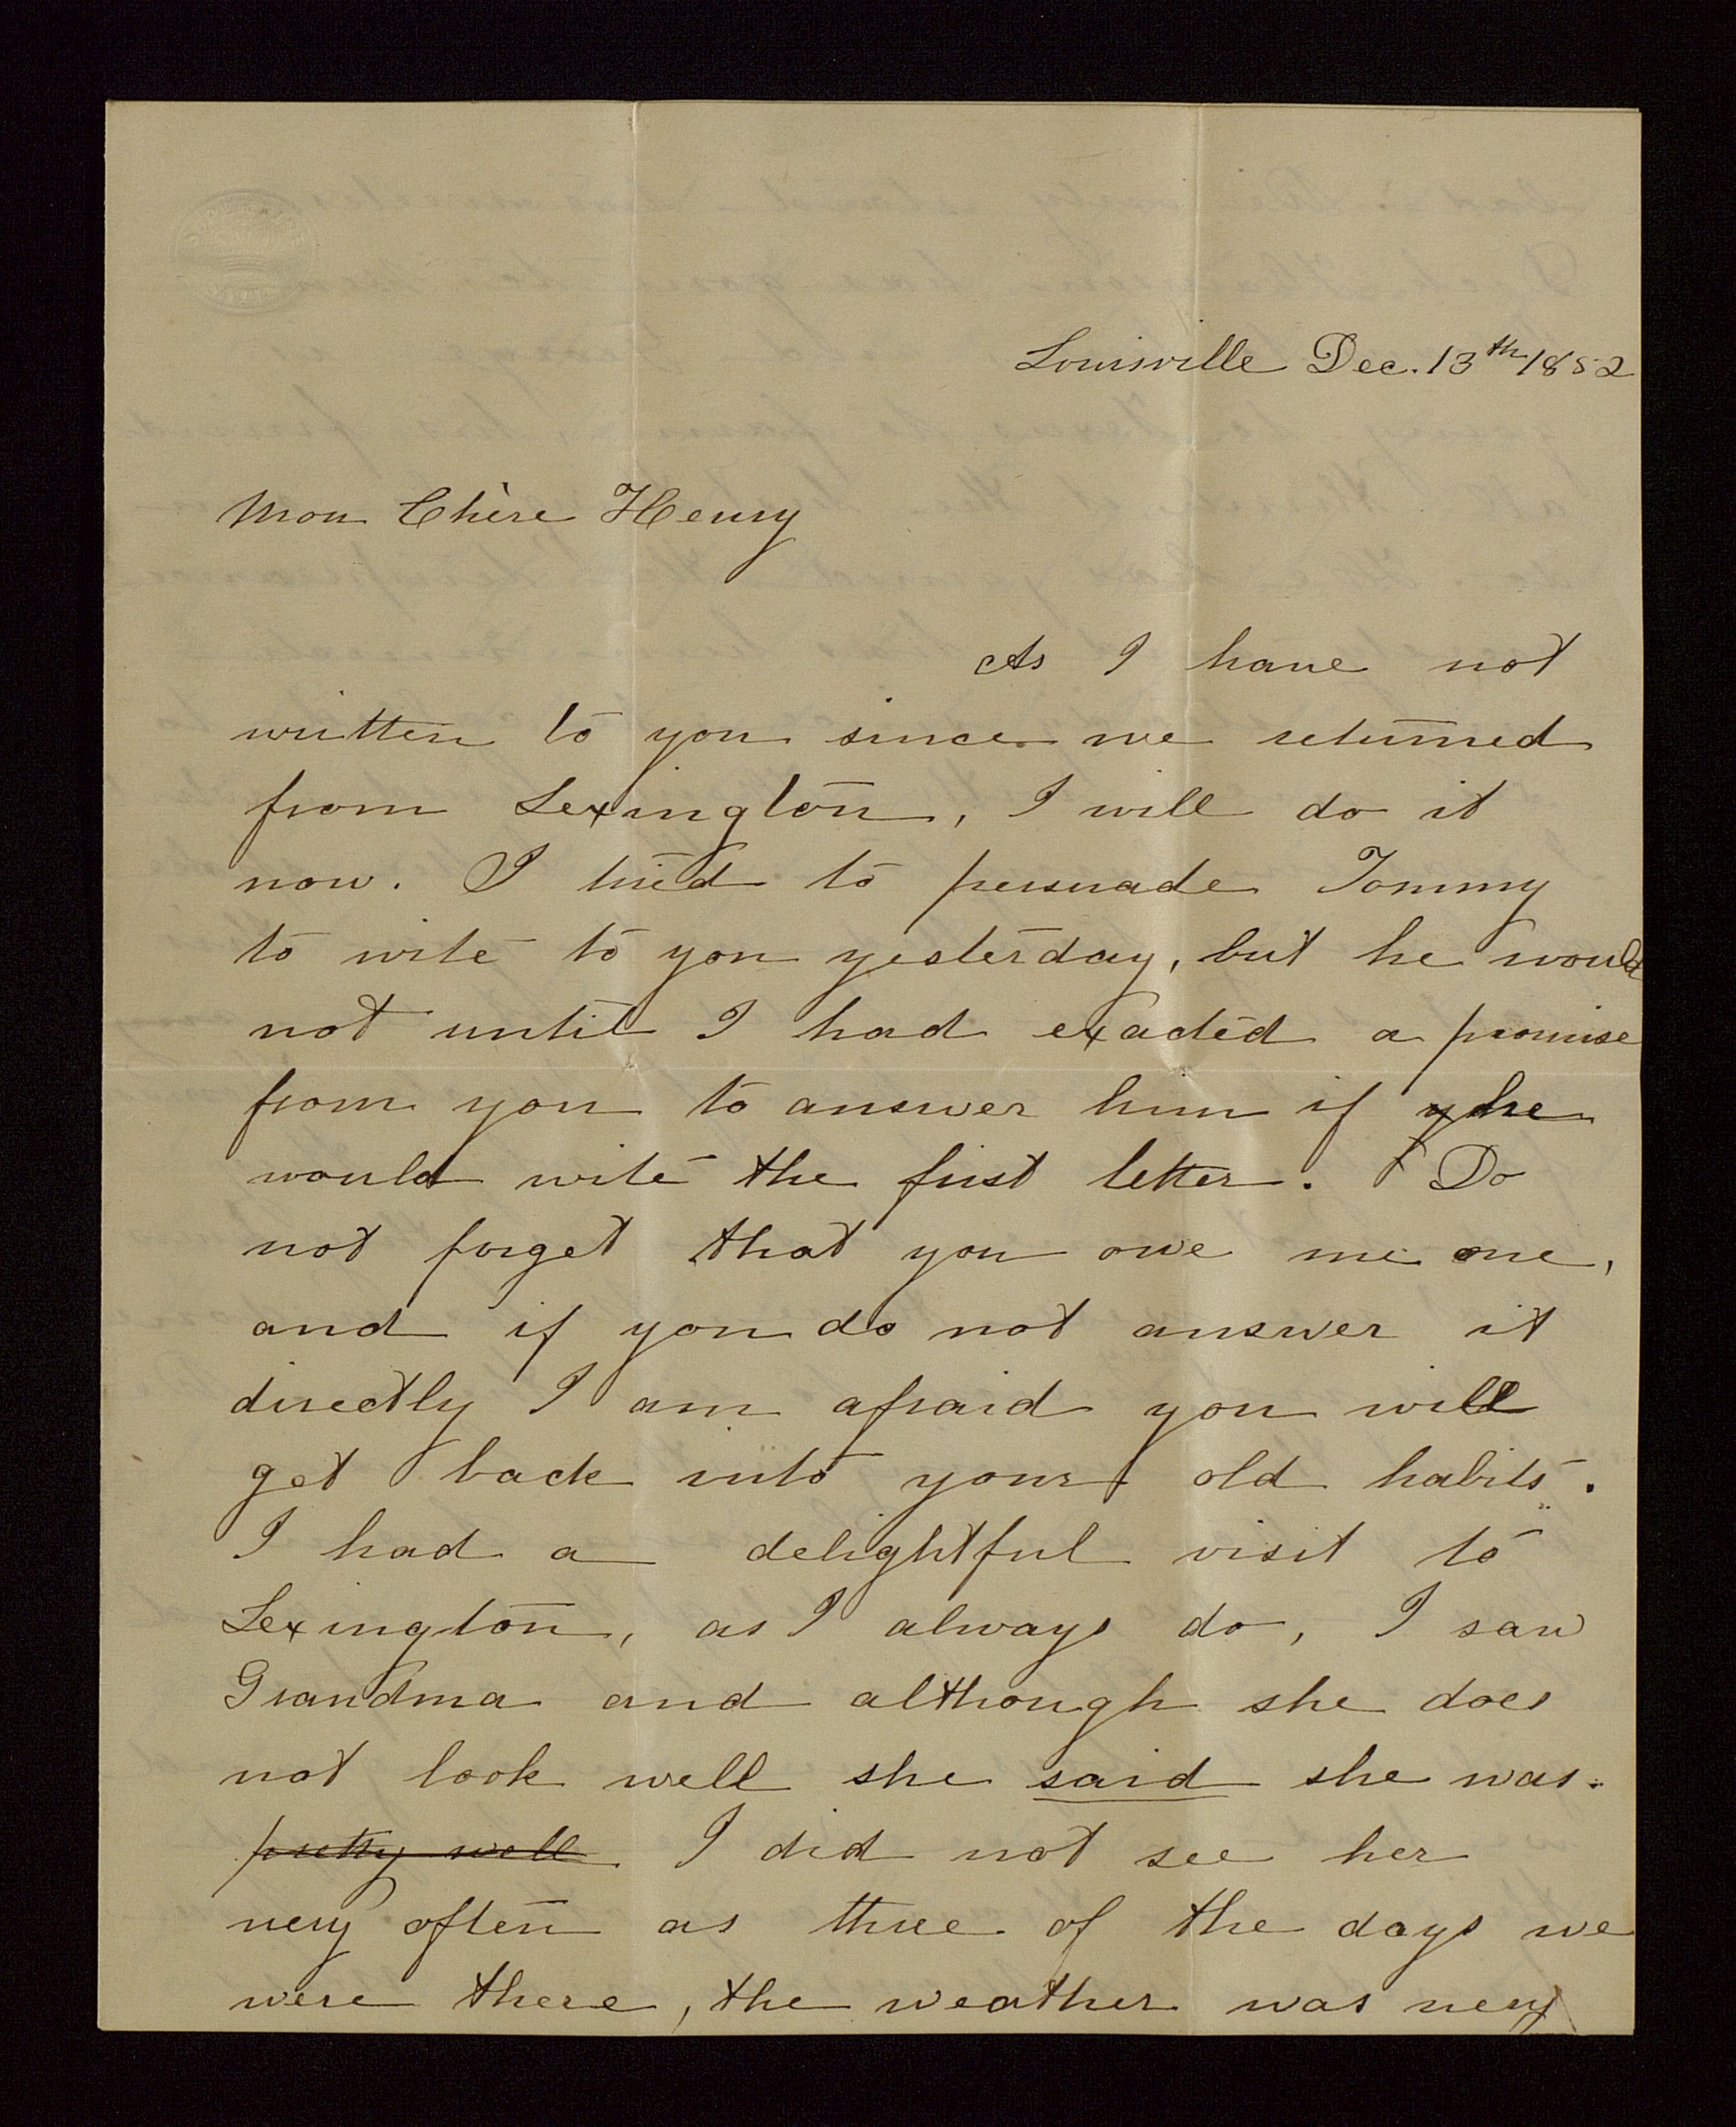 Louisville Dec. 13th 1852
Mon Chère Henry
As I have not
written to you since we returned
from Lexington, I will do it
now. I tried to persuade Tommy
to write to you yesterday, but he would
not until I had exacted a promise
from you to answer him if he
would write the first letter. Do
not forget that you owe me one,
and if you do not answer it
directly I am afraid you will
get back into your old habits.
I had a delightful visit to
Lexington, as I always do, I saw
Grandma and although she does
not look well she said she was.
pretty well I did not see her
very often as three of the days we
were there, the weather was very